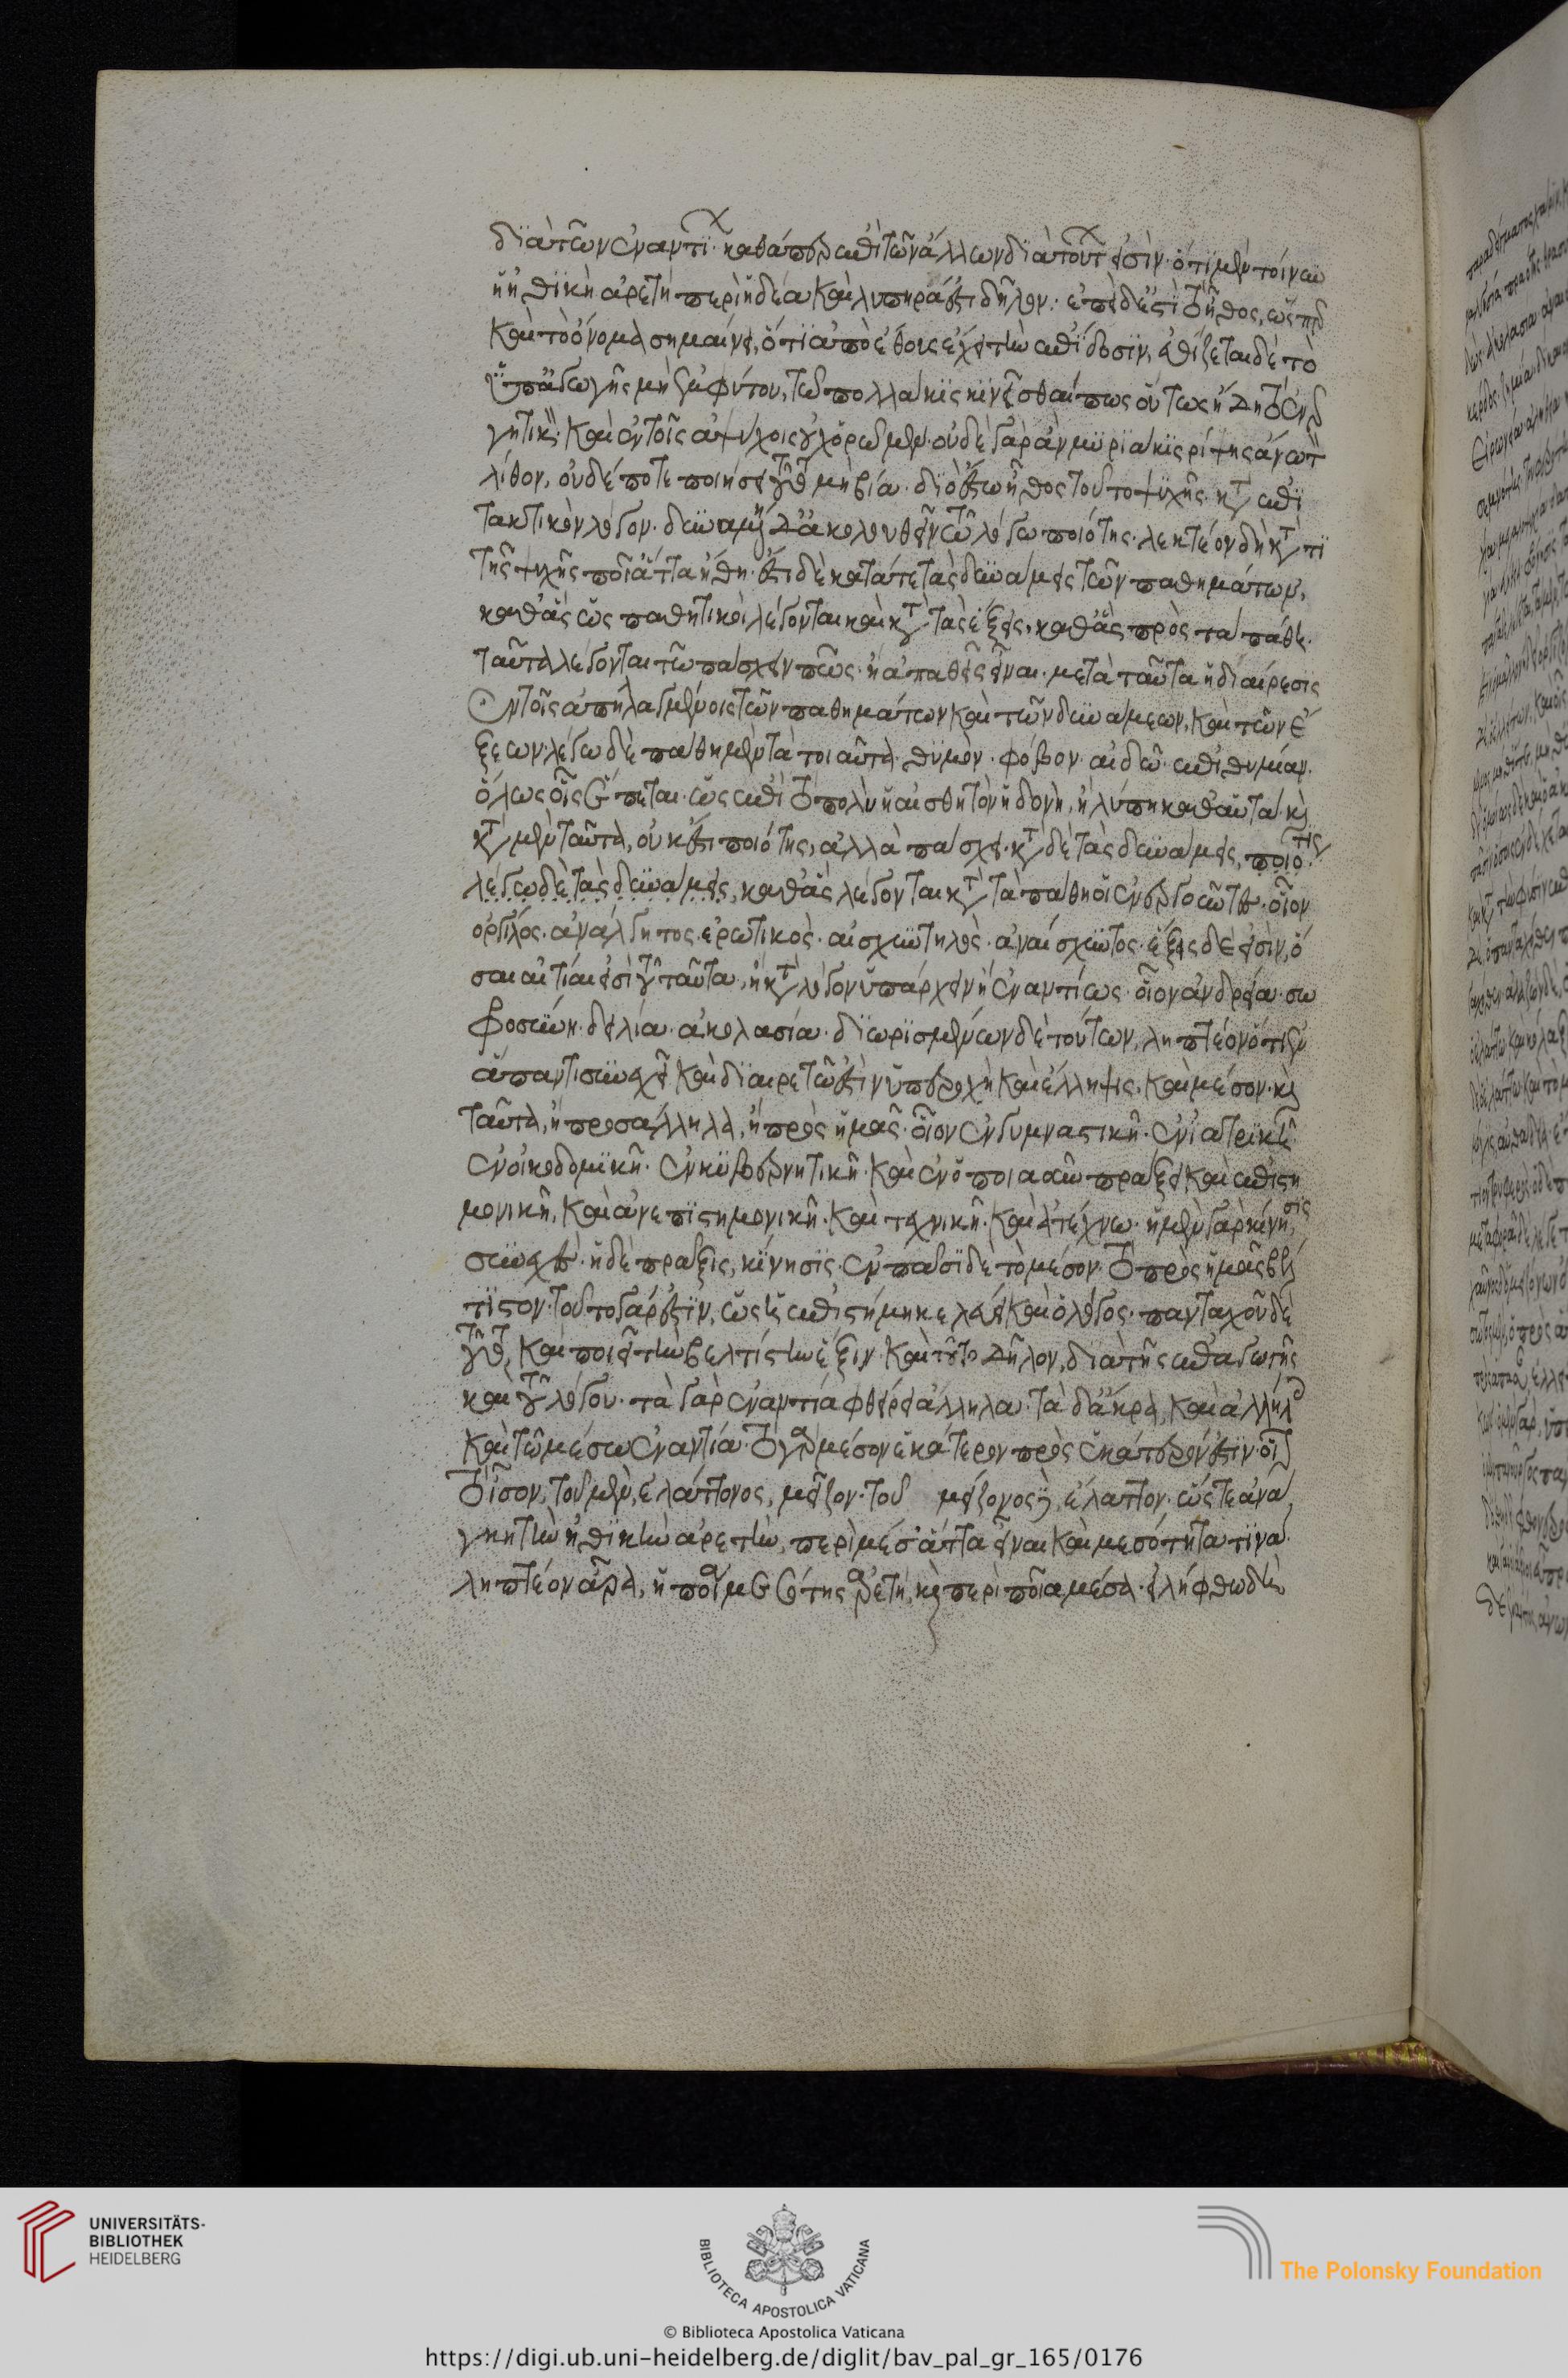 διὰ τῶν ἐναντί· καθάπερ ἐπὶ τῶν ἄλλων διὰ τούτ εἰσὶν· ὅτι μὲν τοίνυν
ἡ ἠθικὴ ἀρετὴ περὶ ἡδέα καὶ λυπηρά ἐστι δῆλον· ἐπεὶ δ' ἐστὶ τὸ ἦθος, ὥσπερ
καὶ τὸ ὄνομα σημαίνει, ὅτι ἀπὸ ἔθους ἔχει τὴν ἐπίδοσιν, ἐθίζεται δὲ τὸ
ὑπ' ἀγωγῆς μὴ ἐμφύτου, τῶ πολλάκις κινεῖσθαί πως οὕτως ἤδη τὸ ἐνερ
γητικὸν· καὶ ἐν τοῖς ἀψύχοις οὐχ ὁρῶμεν· οὐδὲ γὰρ ἂν μυριάκις ρίψης ἄνω τὸν
λίθον, οὐδέποτε ποιήσει τοῦτο μὴ βία· διὸ ἔστω ἦθος τοῦτο ψυχῆς· κατὰ ἐπι
τακτικὸν λόγον· δυναμένη δ' ἀκολουθεῖν τῶ λόγω ποιότης· λεκτέον δὴ κατὰ τί
τῆς ψυχῆς ποῖ' ἄττα ἤθη· ἔστι δὲ κατά τε τὰς δυνάμεις τῶν παθημάτων,
καθ' ἃς ὡς παθητικοὶ λέγονται καὶ κατὰ τὰς ἕξεις, καθ' ἃς πρὸς τὰ πάθη
ταῦτα λέγονται τῶ πάσχειν πῶς· ἢ ἀπαθεῖς εἶναι· μετὰ ταῦτα ἡ διαίρεσις
ἐν τοῖς ἀπηλαγμένοις τῶν παθημάτων καὶ τῶν δυνάμεων, καὶ τῶν ἕ
ξεων· λέγω δὲ πάθη μὲν τὰ τοιαῦτα· θυμὸν· φόβον· αἰδῶ· ἐπιθυμίαν·
ὅλως οἷς ἕπεται· ὡς ἐπὶ τὸ πολὺ ἡ αἰσθητὸν ἡδονὴ, ἢ λύπη καθ' αὑτά· καὶ
κατὰ μὲν ταῦτα, οὐκ ἔστι ποιότης, ἀλλὰ πάσχει· κατὰ δὲ τὰς δυνάμεις, ποιότης
λέγω δὲ τὰς δυνάμεις, καθ' ἃς λέγονται κατὰ τὰ πάθη οἱ ἐνεργοῦντες· οἷον
ὀργίλος· ἀνάλγητος· ἐρωτικὸς· αἰσχυντηλὸς· ἀναίσχυντος· ἕξεις δέ εἰσὶν, ὅ
σαι αἴτιαί εἰσὶ τοῦ ταῦτα, ἢ κατὰ λόγον ὑπάρχειν ἢ ἐναντίως· οἷον ἀνδρεία· σω
φροσύνη· δειλία· ἀκολασία· διωρισμένων δὲ τούτων, ληπτέον ὅτι ἐν
ἅπαντι συνεχεῖ καὶ διαιρετῶ ἐστὶν ὑπεροχὴ καὶ ἔλλειψις· καὶ μέσον· καὶ
ταῦτα, ἢ προσάλληλα, ἢ πρὸς ἡμᾶς· οἷον ἐν γυμναστικῆ· ἐν ἰατρικῆ·
ἐν οἰκοδομικῆ· ἐν κυβερνητικῆ· καὶ ἐν ὁποιαοῦν πράξει καὶ ἐπιστη
μονικῆ, καὶ ἀνεπιστημονικῆ· καὶ τεχνικῆ· καὶ ἀτέχνω· ἡ μὲν γὰρ κίνησις
συνεχὲς· ἡ δὲ πρᾶξις, κίνησις· ἐν πᾶσι δὲ τὸ μέσον τὸ πρὸς ἡμᾶς βέλ
τιστον· τοῦτο γάρ ἐστὶν, ὡς ἡ ἐπιστήμη κελεύει καὶ ὁ λόγος· πανταχοῦ δὲ
τοῦτο, καὶ ποιεῖ τὴν βελτίστην ἕξιν· καὶ τοῦτο δῆλον, διὰ τῆς ἐπαγωγῆς
καὶ τοῦ λόγου· τὰ γὰρ ἐναντία φθείρει ἄλληλα· τὰ δ' ἄκρα, καὶ ἀλλήλοις
καὶ τῶ μέσω ἐναντία· τὸ γὰρ μέσον ἑκάτερον πρὸς ἑκάτερόν ἐστιν· οἷον
τὸ ἴσον, τοῦ μὲν, ἐλάττονος, μεῖζον· τοῦ μείζονος δὲ, ἔλαττον· ὥστε ἀνά
γκη τὴν ἠθικὴν ἀρετὴν, περὶ μέσ' ἄττα εἶναι καὶ μεσότητα τινά·
ληπτέον ἄρα, ἡ ποία μεσότης ἀρετὴ, καὶ περὶ ποῖα μέσα· εἰλήφθω δὴ
UNIVERSITÄTS-
BIBLIOTHEK
HEIDELBERG
BIBLIOTECA APOSTOLICA VATICANA
© Biblioteca Apostolica Vaticana
The Polonsky Foundation
https://digi.ub.uni-heidelberg.de/diglit/bav_pal_gr_165/0176